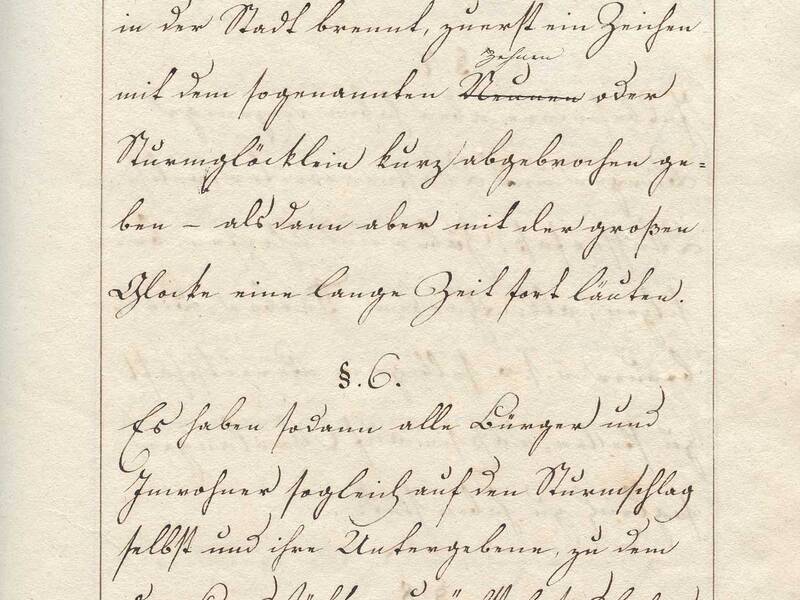 in der Stadt brennt, zuerst ein Zeichen
Zehnen
mit dem sogenannten Neunen oder
Sturmglöcklein kurz abgebrochen ge=
ben – alsdann aber mit der großen
Glocke eine lange Zeit fort läuten.
§. 6.
Es haben sodann alle Bürger und
Inwohner sogleich auf den Sturmschlag
selbst und ihre Untergebene, zu dem